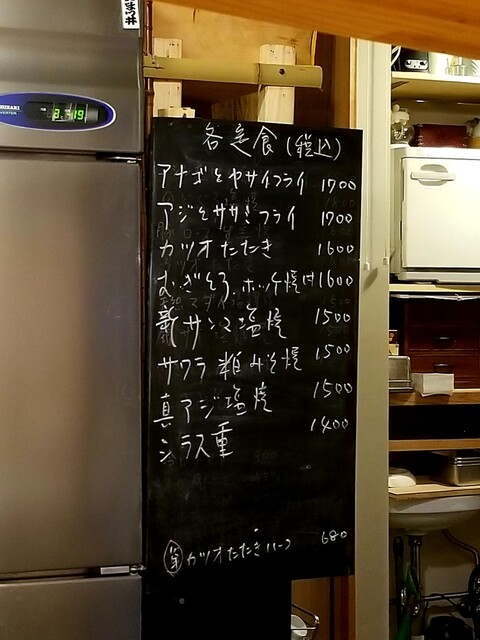 まつ井
HOSHIZAKI
INVERTER
各定食(税込)
アナゴとヤサイフライ 1700
アジとササミフライ 1700
カツオたたき 1600
むぎとろ、ホッケ焼付 1600
新サンマ塩焼 1500
サワラ粕みそ焼 1500
真アジ塩焼 1500
シラス重 1400
単 カツオたたきハーフ 680